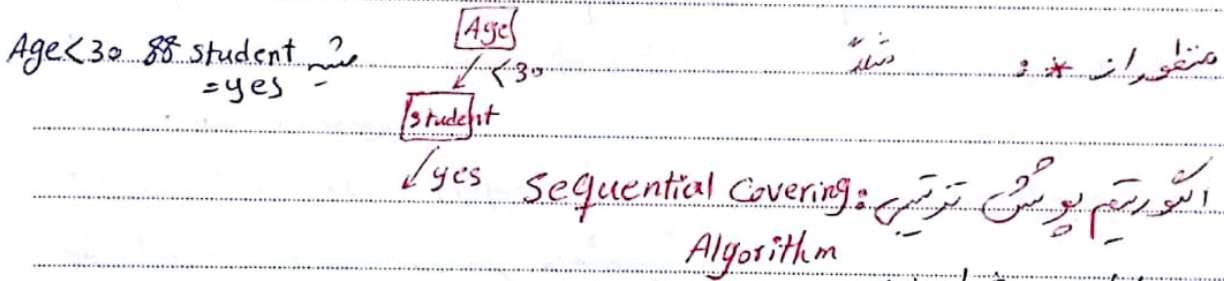 منظور از * : مثلاً
Age
<30
Age<30 && student =yes
student
yes
الگوریتم پوشش ترتیبی: Sequential Covering
Algorithm